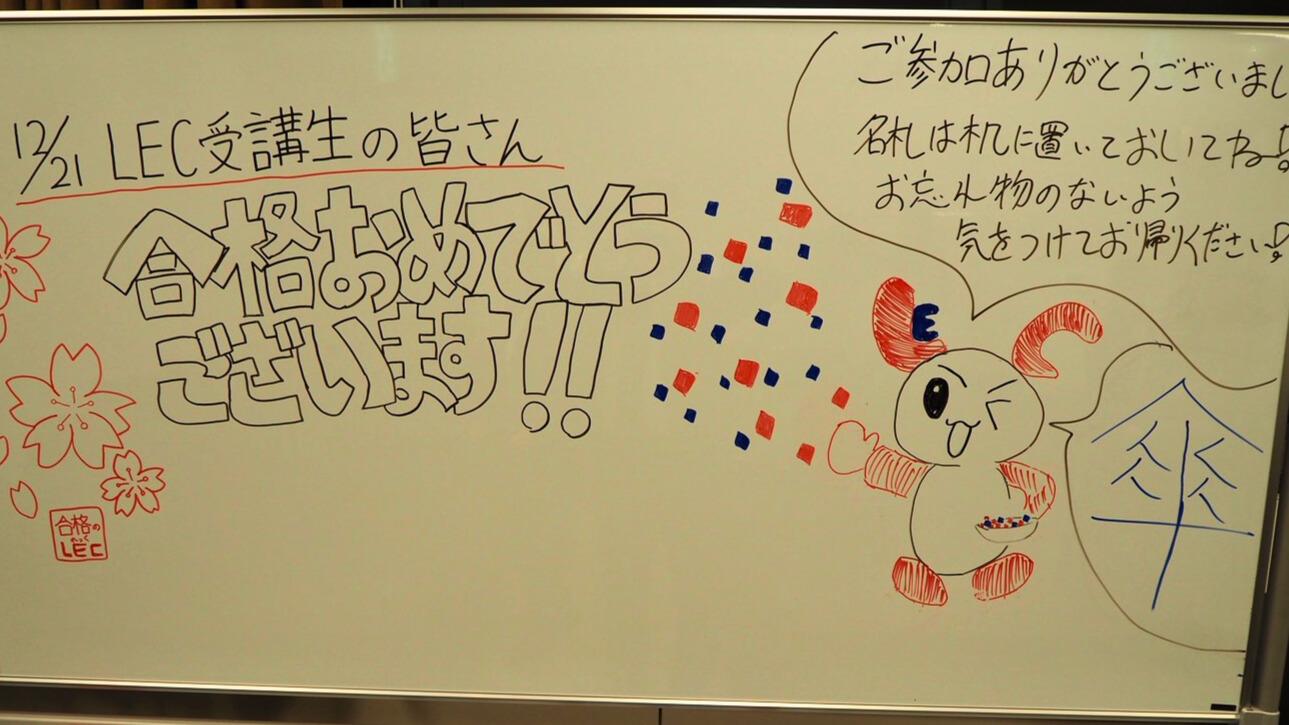 12/21 LEC受講生の皆さん
合格おめでとう
ございます!!
合格の
れっく
LEC
ご参加ありがとうございまし
名札は机に置いておいてね!
お忘れ物のないよう
気をつけてお帰りください!
E
傘